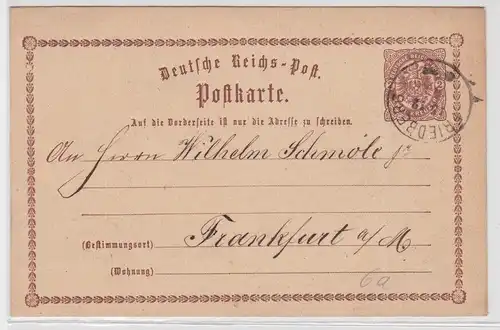 Deutsche Reichs-Post.
Postkarte.
Auf die Vorderseite ist nur die Adresse zu schreiben.
FRIEDBERG
An Herrn Wilhelm Schmöle jr
(Bestimmungsort) Frankfurt a/M.
(Wohnung)
6a